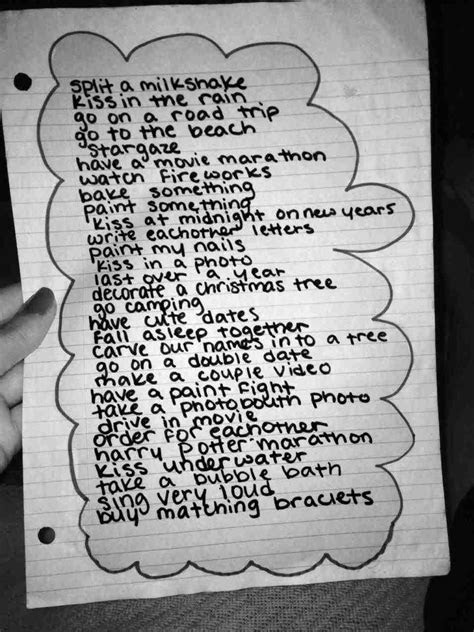 split a milkshake
kiss in the rain
go on a road trip
go to the beach
stargaze
have a movie marathon
watch fireworks
bake something
paint something
kiss at midnight on new years
write eachother letters
paint my nails
kiss in a photo
last over a year
decorate a christmas tree
go camping
have cute dates
fall asleep together
carve our names in to a tree
go on a double date
make a couple video
have a paint fight
take a photobouth photo
drive in movie
order for eachother
harry potter marathon
kiss underwater
take a bubble bath
sing very loud
buy matching braclets